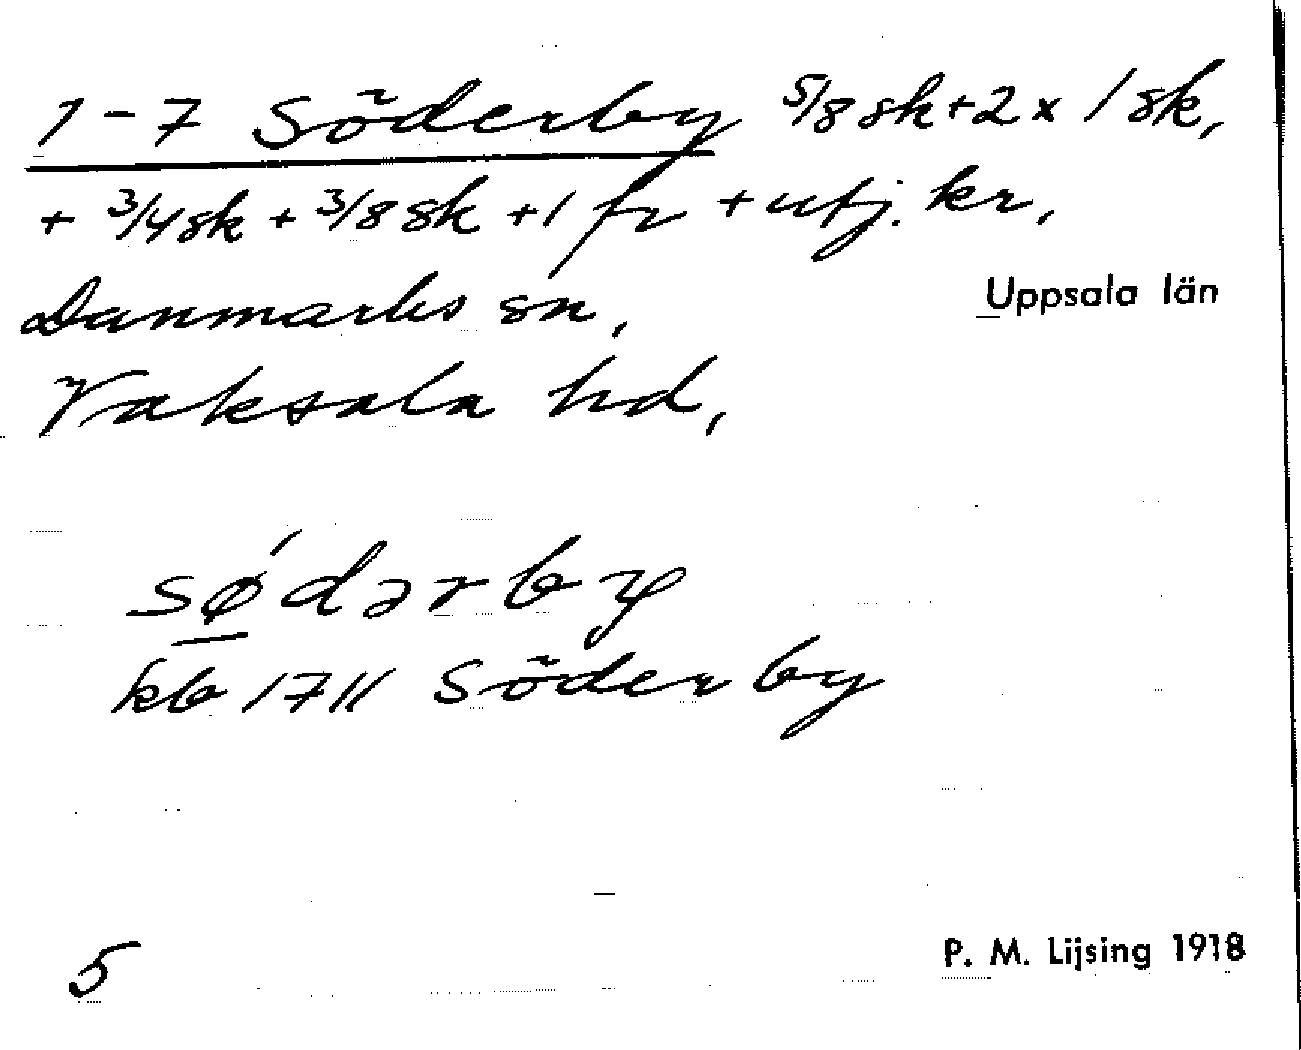 1-7 Söderby 5/8 sk + 2 x 1 sk,
+ 3/4 sk + 3/8 sk + 1 fr + utj. kr,
Danmarks sn,
Uppsala län
Vaksala hd,
sǿdərby
kb 1711 Söderby
5
P. M. Lijsing 1918